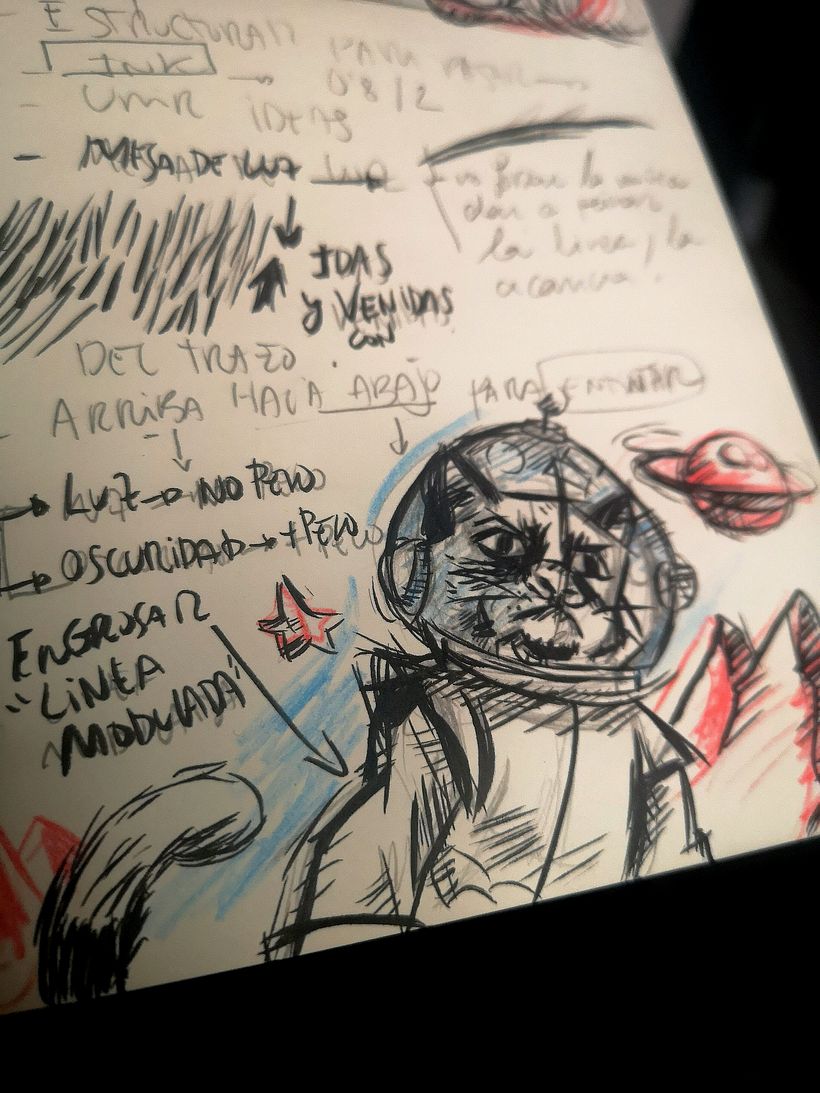 - ESTRUCTURAR PARA PASAR
- INK → 0'8/2
- UNIR IDEAS
- MESA DE LUZ LUZ
dar a
la linea, la
IDAS
y VENIDAS
CON
DEL TRAZO.
- ARRIBA HACIA ABAJO PARA ENTINTAR
LUZ → NO PESO
OSCURIDAD → + PESO
ENGROSAR
"LINEA
MODULADA"